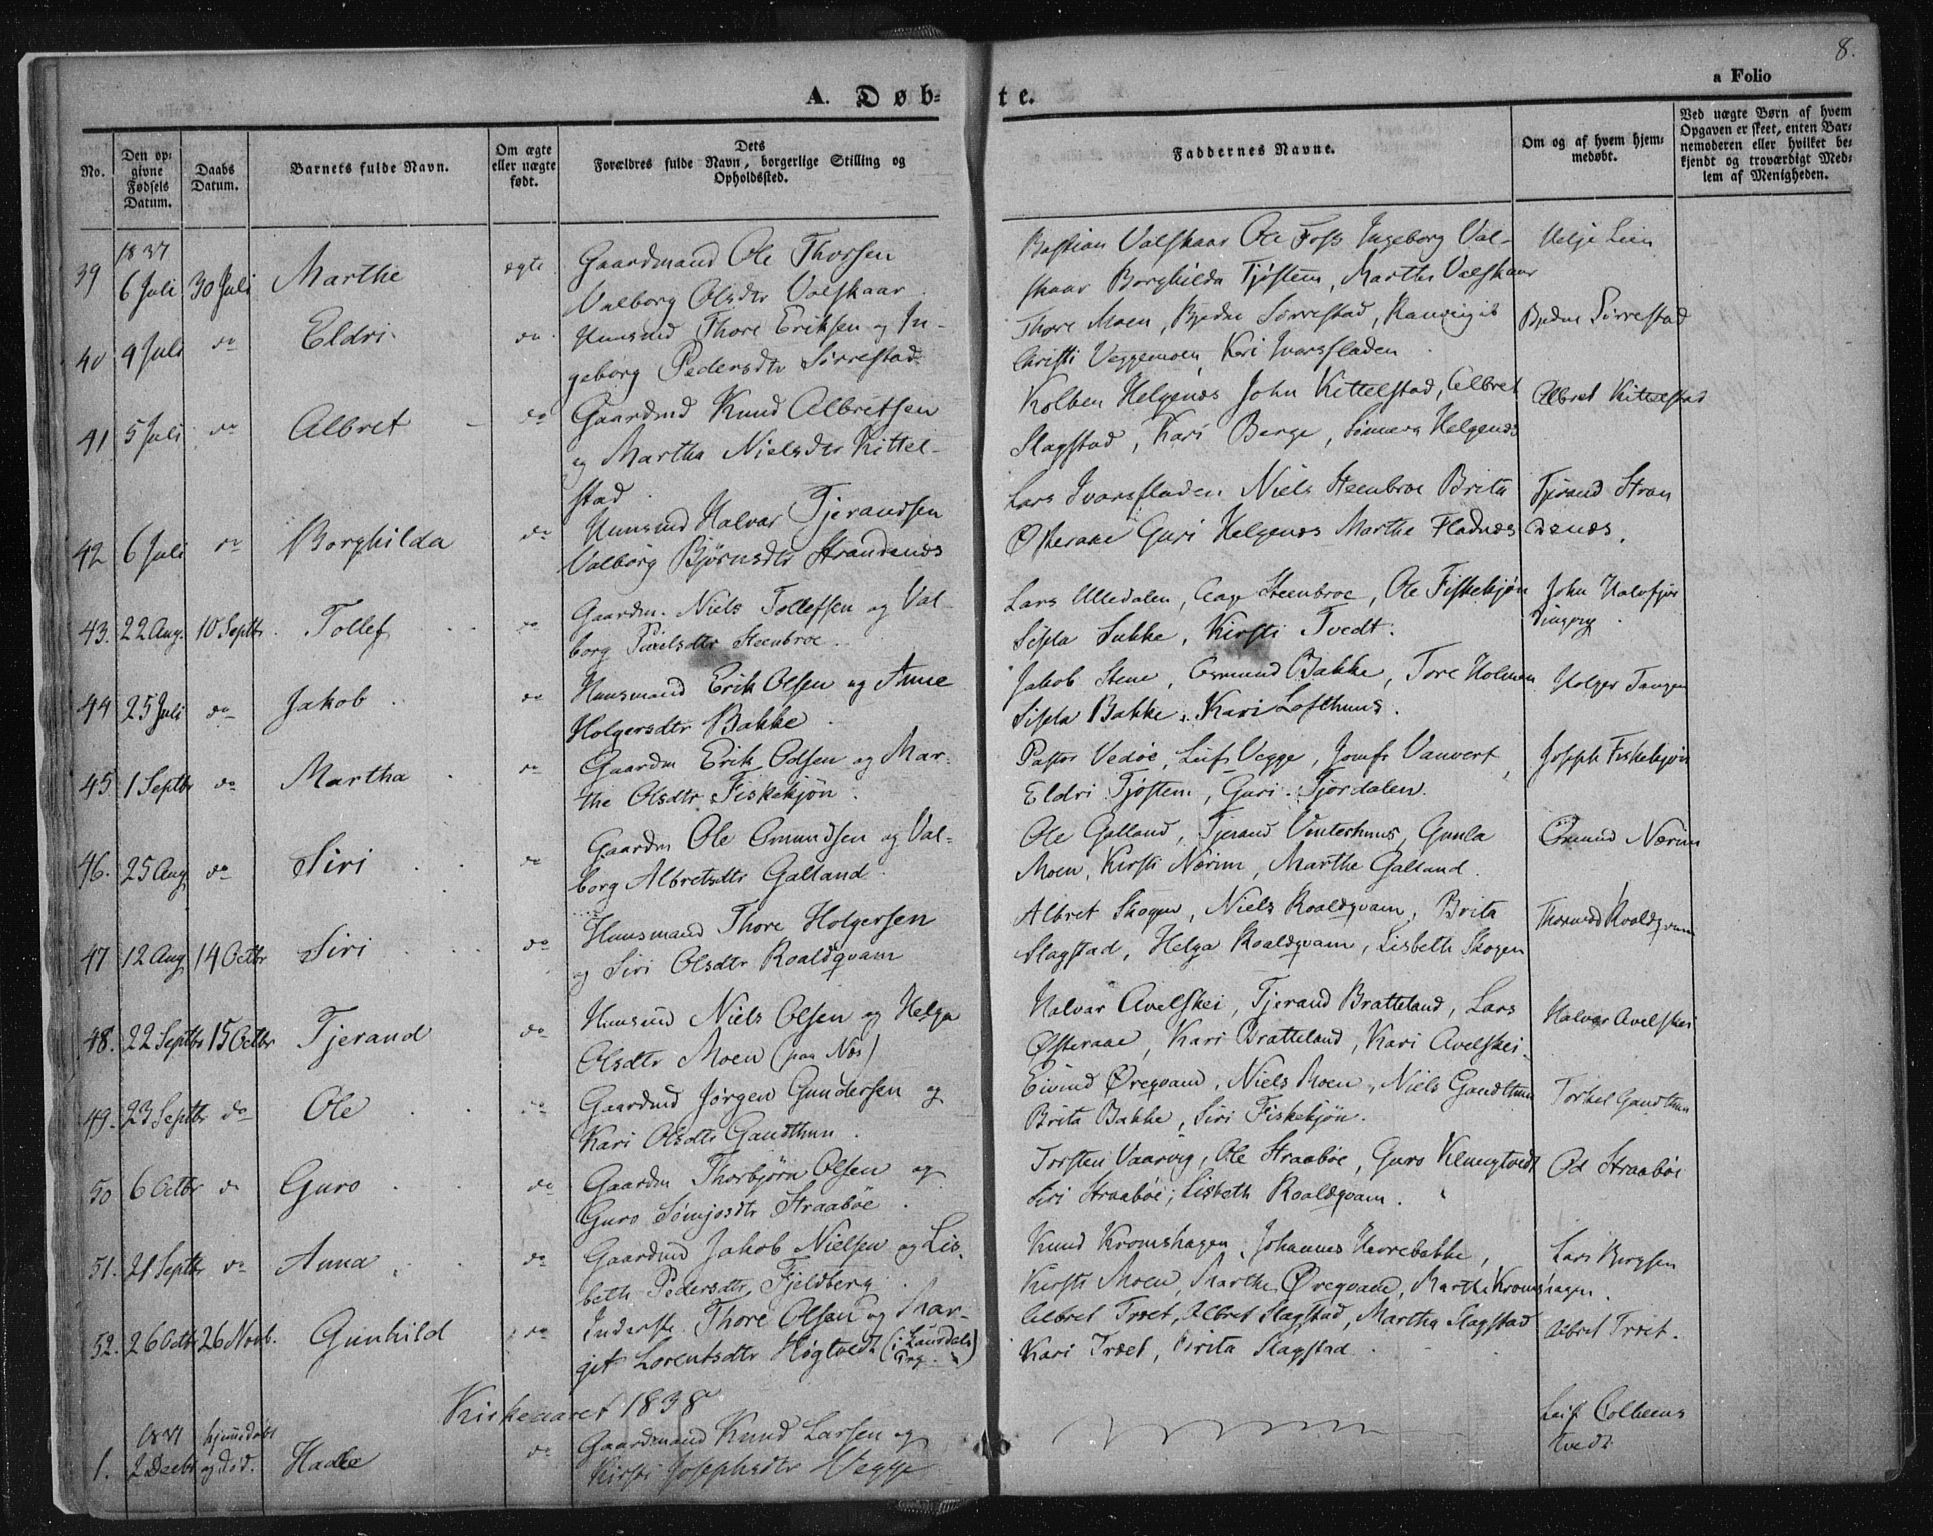 8.
a Folio
A. Døb-
te.
No.
Den op-
givne
Fødsels
Datum.
Daabs
Datum.
Barnets fulde Navn.
Om ægte
eller uægte
født.
Dets
Forældres fulde Navn, borgerlige Stilling og
Opholdssted.
Faddernes Navne.
Om og af hvem hjem-
medøbt.
Ved uægte Børn af hvem
Opgaven er skeet, enten Bar-
nemoderen eller hvilket be-
kjendt og troværdigt Med-
lem af Menigheden.
1837
39 6 Juli 30 Juli Marthe ægte Gaardmand Ole Thorsen
Valborg Olsdtr Valskaar
Bastian Valskaar Ole Foss Ingeborg Val-
skaar Borghilda Tjøstem, Marthe Valskaar
Helje Lien
40 9 Juli do Eldri do Huusmd Thore Eriksen og In-
geborg Pedersdtr Sørrestad
Thore Moen, Sørrestad,
Christi Veggemoen, Kari Ivarsfladen
Sørrestad
41 5 Juli do Albret do Gaardmd Knud Albretsen
og Martha Nielsdtr Kittel-
stad.
Kolben Helgenæs John Kittelstad, Albret
Slagstad, Kari Berge, Helgenæs
Albret Kittelstad
42 6 Juli do Borghilda do Huusmd Halvar Tjerandsen
Valborg Bjørnsdtr Strandenæs
Lars Ivarsfladen Niels Steenbroe Brita
Østeraae Guri Helgenæs Marthe Fladnæs
Tjerand Stran
denæs.
43. 22 Aug. 10 Septbr. Tollef do Gaardm. Niels Tollefsen og Val-
borg Steenbroe.
Lars Ulledalen, Aage Steenbroe, Ole Fiskekjøn
Sissla Sukke, Kirsti Tvedt.
John
44 25 Juli do Jakob do Huusmand Erik Olsen og Anne
Holgersdtr Bakke.
Jakob Stene, Omund Bakke, Tore Holmen
Sissla Bakke, Kari Lofthuus.
Holger Tangen
45 1 Septbr do Martha do Gaardm Erik Odsen og Mar-
the Olsdtr Fiskekjøn.
Pastor Vedøe, Leif Vegge, Jomfr Vanvert,
Eldri Tjøstem, Guri Tjordalen.
Joseph Fiskekjøn
46. 25 Aug do Siri do Gaardm Ole Omundsen og Val-
borg Albretsdtr Galland.
Ole Galland, Tjerand Vinterhuus, Gunla
Moen, Kirsti Nørim, Marthe Galland.
Omund Nærim
47 12 Aug 14 Octbr Siri do Huusmand Thore Holgersen
og Siri Olsdtr Roaldqvam
Albret Skogen, Niels Roaldqvam, Brita
Slagstad, Helga Roaldqvam, Lisbeth Skogen
Roaldqvam
48. 22 Septbr 15 Octbr Tjerand do Huusmd Niels Olsen og Helga
Olsdtr Moen (paa Næs)
Halvar Avelskei, Tjerand Bratteland, Lars
Østeraae, Kari Bratteland, Kari Avelskei.
Halvar Avelskei
49. 23 Septbr do Ole do Gaardmd Jørgen Gundersen og
Kari Olsdtr Gandthun.
Eivind Øreqvam, Niels Moen, Niels Gandthun
Brita Bakke, Siri Fiskekjøn.
Torkel Gandthun
50 6 Octbr do Guro do Gaardm Thorbjørn Olsen og
Guro Straabøe.
Torsten Vaarvig, Ole Straabøe, Guro
Siri Straabøe, Lisbeth Roaldqvam.
Od Straabøe
51. 21 Septbr do Anna do Gaardmd Jakob Nielsen og Lis-
beth Pedersdtr Fjeldberg.
Knud Kromshagen, Johannes Herrebakke,
Kirsti Moen, Marthe Øreqvam, Marthe Kromshagen.
Lars Bergsen
52. 26 Octbr 26 Novb. Gunhild do Inderste Thore Olsen og Mar-
git Lorentsdtr Høgtvedt (i Laurdals
Prg.)
Albret Træet, Albret Slagstad, Martha Slagstad
Kari Træet, Brita Slagstad.
Albret Træet.
Kirkeaaret 1838
1837 hjemmedøbt
1. 2 Decbr og død. Hadle do Gaardmand Knud Larsen og
Kirsti Josephsdtr Vegge
Leif Colbens
tvedt